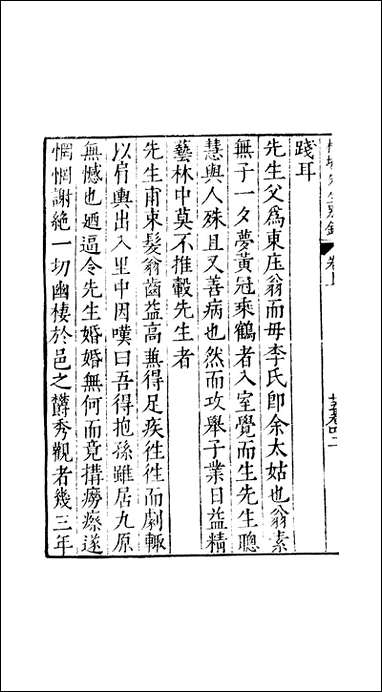 踐耳
先生父爲東庄翁而毋李氏卽余太姑也翁素
無子一夕夢黃冠乘鶴者入室覺而生先生聰
慧與人殊且又善病也然而攻舉子業日益精
藝林中莫不推轂先生者
先生甫束髮翁齒益高兼得足疾徃徃而劇輙
以肩輿出入里中因嘆曰吾得抱孫雖居九原
無憾也廼逼令先生婚婚無何而竟搆癆瘵遂
惘惘謝絶一切幽棲於邑之欝秀觀者幾三年